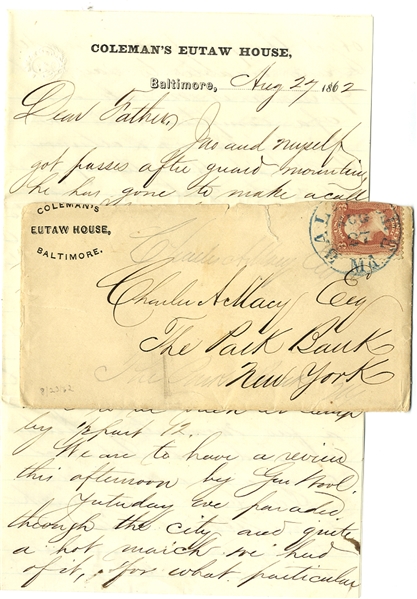 COLEMAN'S EUTAW HOUSE,
Baltimore, Aug 27 1862
Dear Father,
Jno and myself
got passes after guard mounting
he has gone to make a call
COLEMAN'S
EUTAW HOUSE,
BALTIMORE.
Charles A Macy Esq
The Park Bank
New York
by ½ past 12.
We are to have a review
this afternoon by Gen Wool.
Yesterday we paraded
through the city and quite
a hot march we had
of it, for what particular